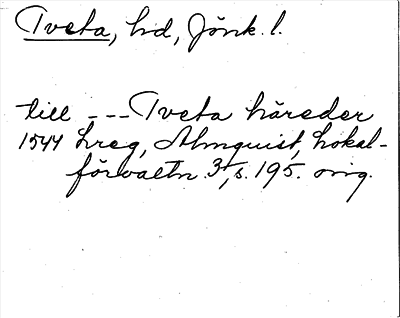 Tveta, hd, Jönk. l.
till --- Tveta häreder
1544 Lreg, Almquist, Lokal-
förvaltn. 3, s. 195. orig.